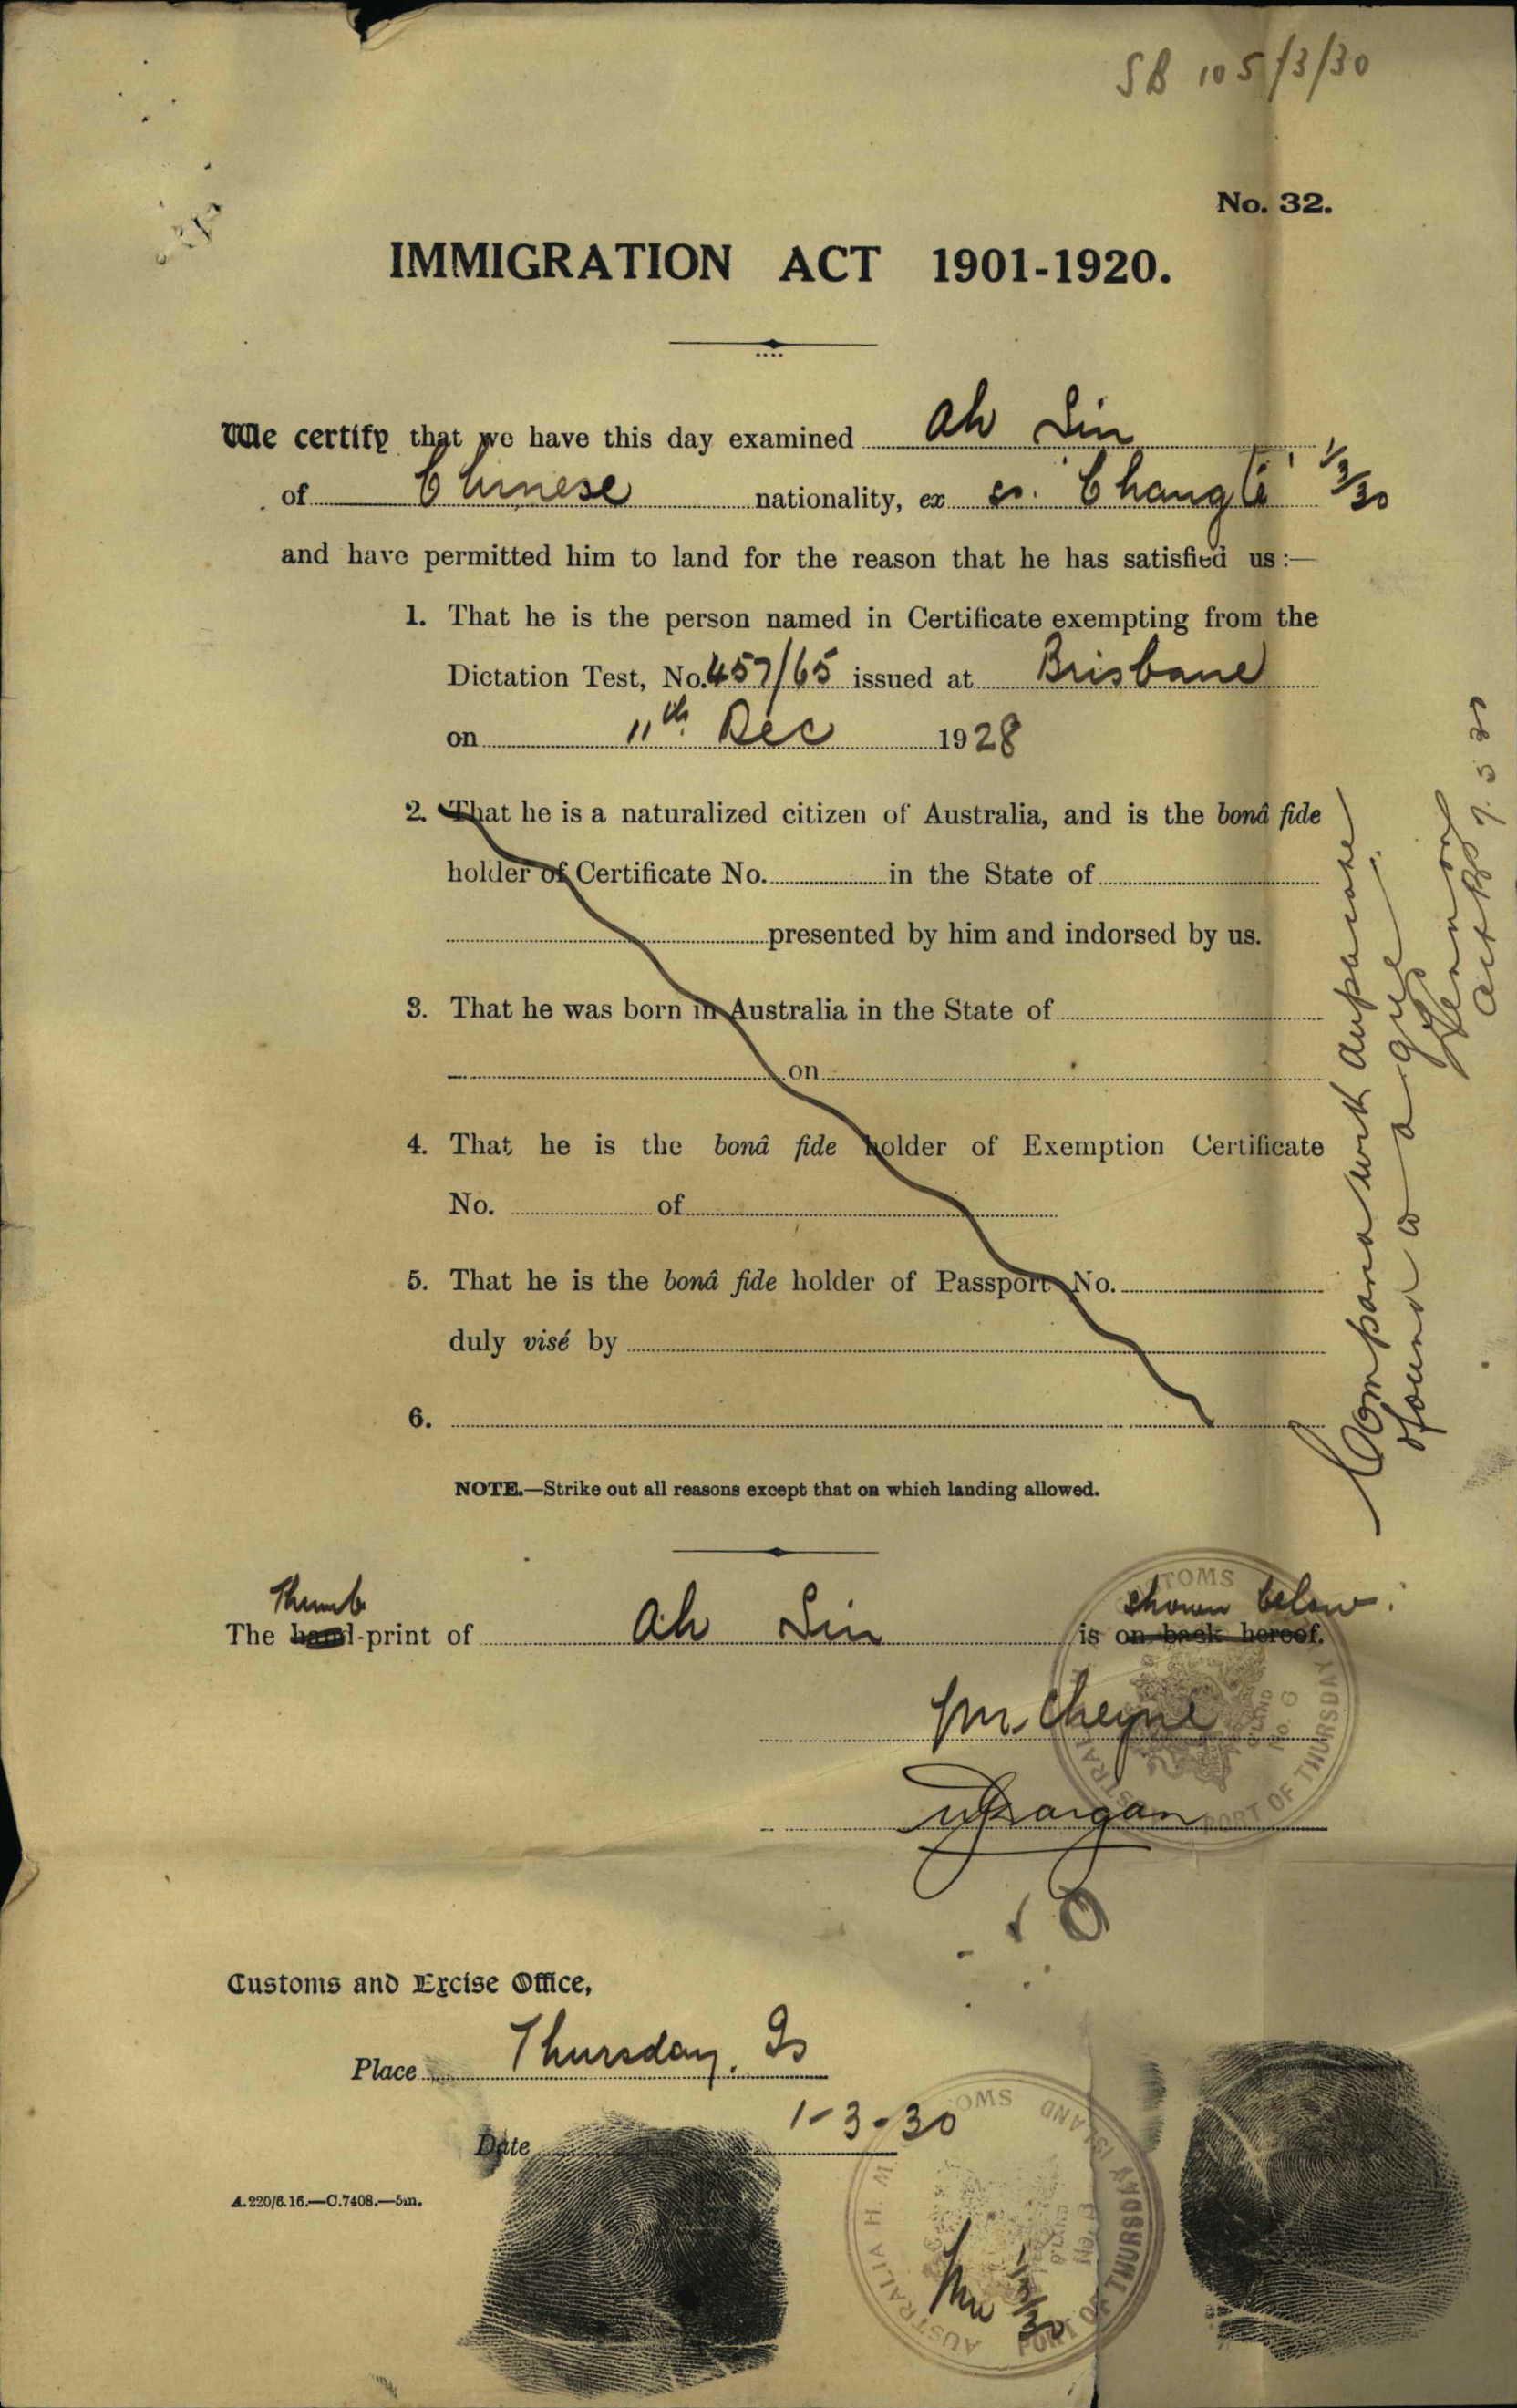 SB 105/3/30
No. 32.
IMMIGRATION ACT 1901-1920.
We certify that we have this day examined Ah Sin
of Chinese nationality, ex ss. 'Changte' 1/3/30
and have permitted him to land for the reason that he has satisfied us:—
1. That he is the person named in Certificate exempting from the
Dictation Test, No. 457/65 issued at Brisbane
on 11th Dec 1928
2. That he is a naturalized citizen of Australia, and is the bonâ fide
holder of Certificate No. in the State of
presented by him and indorsed by us.
3. That he was born in Australia in the State of
on
4. That he is the bonâ fide holder of Exemption Certificate
No. of
5. That he is the bonâ fide holder of Passport No.
duly visé by
6.
NOTE.—Strike out all reasons except that on which landing allowed.
Compared with duplicate
found to agree
7.3.30
Thumb shown below.
The hand-print of Ah Sin is on back hereof.
Cheyne
Customs and Excise Office,
Place Thursday. Is
Date 1-3-30
A.220/6.16.—C.7408.—5m.
AUSTRALIA H. M. CUSTOMS
PORT OF THURSDAY ISLAND
Q'LAND
No. 6
1/3/30